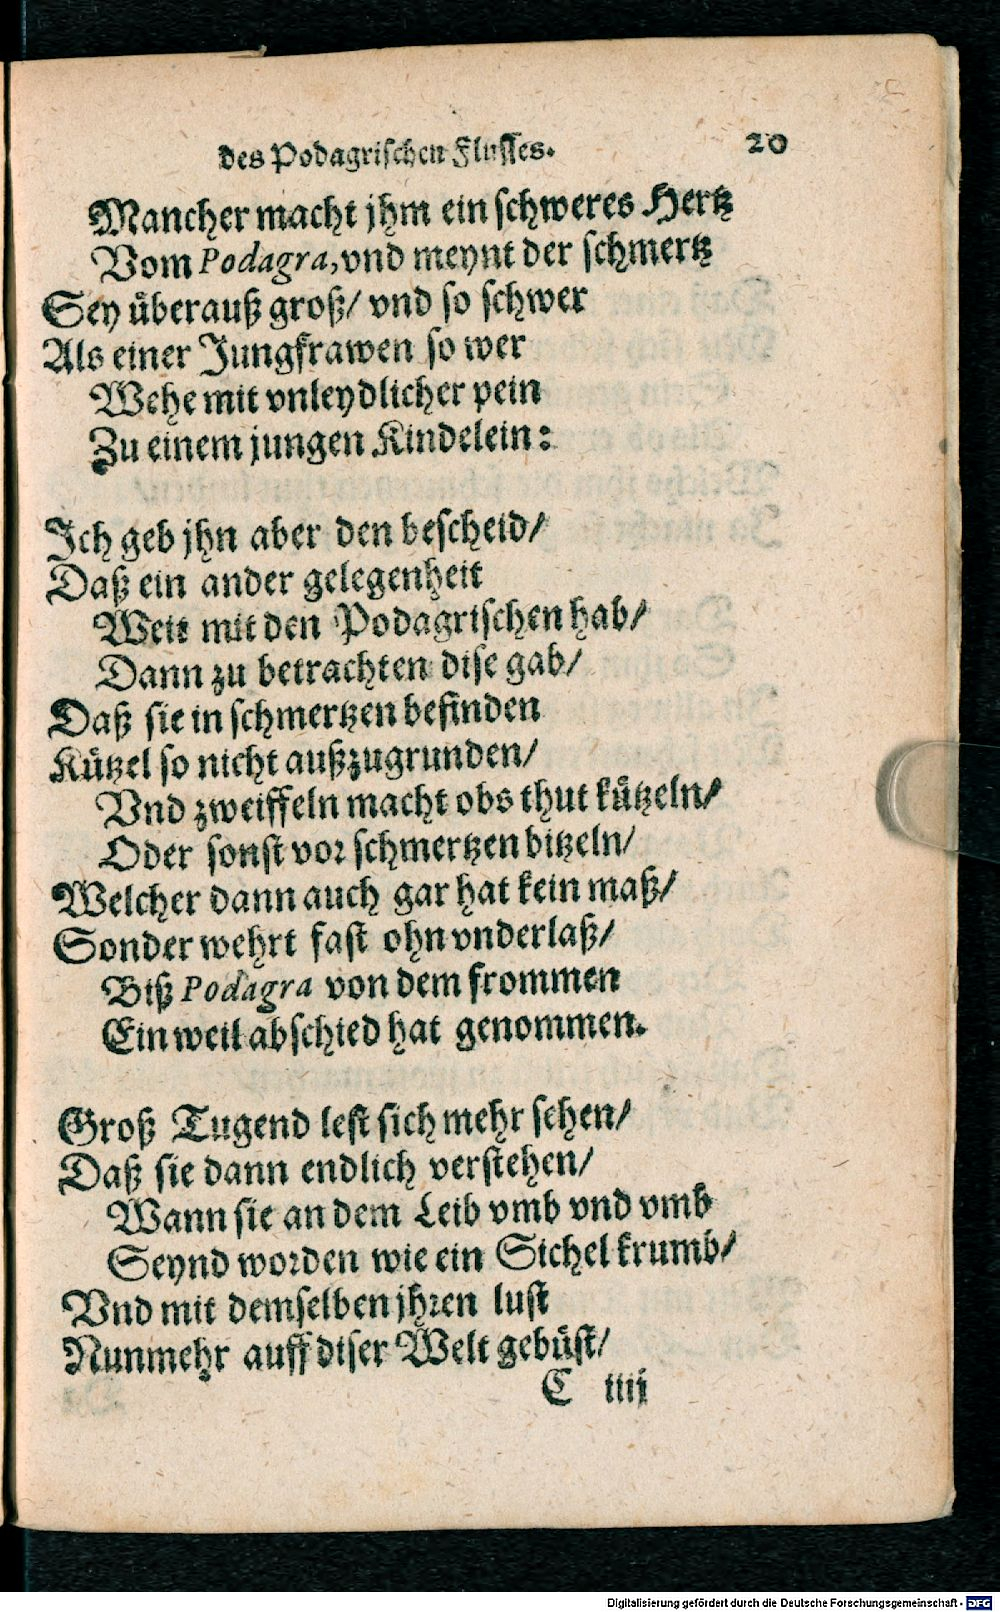 des Podagrischen Flusses. 20
Mancher macht jhm ein schweres Hertz
Vom Podagra, vnd meynt der schmertz
Sey überauß groß/ vnd so schwer
Als einer Jungfrawen so wer
Wehe mit vnleydlicher pein
Zu einem jungen Kindelein:
Ich geb jhn aber den bescheid/
Daß ein ander gelegenheit
Weit mit den Podagrischen hab/
Dann zu betrachten dise gab/
Daß sie in schmertzen befinden
Kützel so nicht außzugrunden/
Vnd zweiffeln macht obs thut kützeln/
Oder sonst vor schmertzen bitzeln/
Welcher dann auch gar hat kein maß/
Sonder wehrt fast ohn vnderlaß/
Biß Podagra von dem frommen
Ein weil abschied hat genommen.
Groß Tugend lest sich mehr sehen/
Daß sie dann endlich verstehen/
Wann sie an dem Leib vmb vnd vmb
Seynd worden wie ein Sichel krumb/
Vnd mit demselben jhren lust
Nunmehr auff diser Welt gebüst/
C iiij
Digitalisierung gefördert durch die Deutsche Forschungsgemeinschaft - DFG